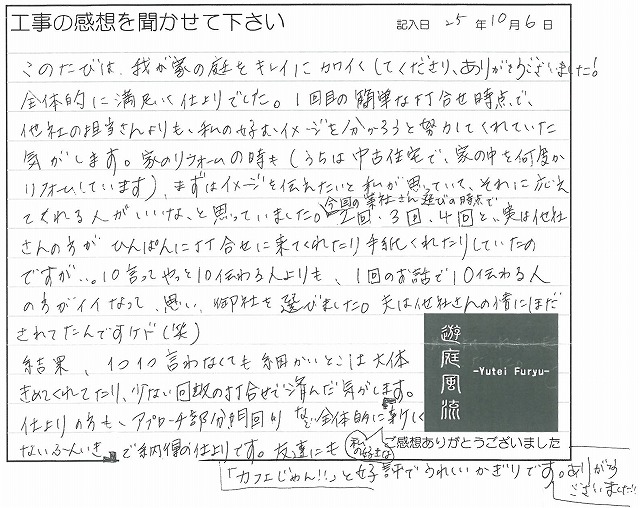 工事の感想を聞かせて下さい
記入日 25 年 10 月 6 日
このたびは、我が家の庭をキレイにカワイくしてくださり、ありがとうございました!
全体的に満足いく仕上りでした。1回目の簡単な打合せ時点で、
他社の担当さんよりも、私の好むイメージを分かろうと努力してくれていた
気がします。家のリフォームの時も(うちは中古住宅で、家の中を何度か
リフォームしています)、まずはイメージを伝えたいと私が思っていて、それに応え
てくれる人がいいな、と思っていました。今回の業社さん選びの時点で2回、3回、4回と、実は他社
さんの方がひんぱんに打合せに来てくれたり手紙くれたりしていたの
ですが…。10言ってやっと10伝わる人よりも、1回のお話で10伝わる人
の方がイイなって思い、御社を選びました。夫は他社さんの情にほだ
されてたんですケド(笑)
結果、1つ1つ言わなくても細かいとこは大体
きめてくれてたり、少ない回数の打合せで済んだ気がします。
仕上りの方も、アプローチ部分
など全体的に
ないふんいき
で納得の仕上りです。友達にも私の好きな
「カフェじゃん!!」と好評でうれしいかぎりです。ありがとう
ございました!!
遊庭風流
-Yutei Furyu-
ご感想ありがとうございました